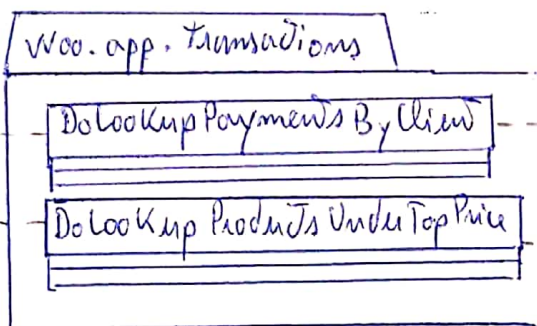 woo.app.transactions
DoLookupPaymentsByClient
DoLookupProductsUnderTopPrice